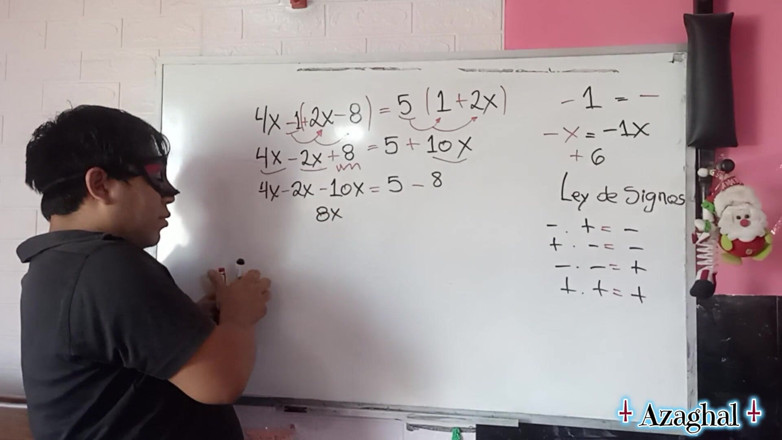 4x -1(+2x-8) = 5 (1+2x)
4x -2x +8 = 5 + 10x
4x -2x -10x = 5 - 8
8x
- 1 = -
- x = -1x
+ 6
Ley de Signos
- . + = -
+ . - = -
- . - = +
+ . + = +
Azaghal